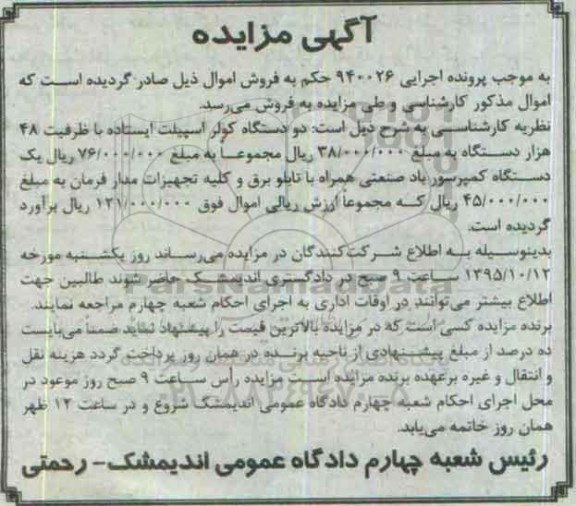 آگهی مزایده
به موجب پرونده اجرایی ۹۴۰۰۲۶ حکم به فروش اموال ذیل صادر گردیده است که
اموال مذکور کارشناسی و طی مزایده به فروش می‌رسد.
نظریه کارشناسی به شرح ذیل است: دو دستگاه کولر اسپیلت ایستاده با ظرفیت ۴۸
هزار دستگاه به مبلغ ۳۸/۰۰۰/۰۰۰ ریال مجموعا به مبلغ ۷۶/۰۰۰/۰۰۰ ریال یک
دستگاه کمپرسور باد صنعتی همراه با تابلو برق و کلیه تجهیزات مدار فرمان به مبلغ
۴۵/۰۰۰/۰۰۰ ریال که مجموعاً ارزش ریالی اموال فوق ۱۲۱/۰۰۰/۰۰۰ ریال برآورد
گردیده است.
بدینوسیله به اطلاع شرکت‌کنندگان در مزایده می‌رساند روز یکشنبه مورخه
۱۳۹۵/۱۰/۱۲ ساعت ۹ صبح در دادگستری اندیمشک حاضر شوند طالبین جهت
اطلاع بیشتر می‌توانند در اوقات اداری به اجرای احکام شعبه چهارم مراجعه نمایند.
برنده مزایده کسی است که در مزایده بالاترین قیمت را پیشنهاد نماید ضمناً می‌بایست
ده درصد از مبلغ پیشنهادی از ناحیه برنده در همان روز پرداخت گردد هزینه نقل
و انتقال و غیره برعهده برنده مزایده است. مزایده رأس ساعت ۹ صبح روز موعود در
محل اجرای احکام شعبه چهارم دادگاه عمومی اندیمشک شروع و در ساعت ۱۲ ظهر
همان روز خاتمه می‌یابد.
رئیس شعبه چهارم دادگاه عمومی اندیمشک- رحمتی
ParsNamadData